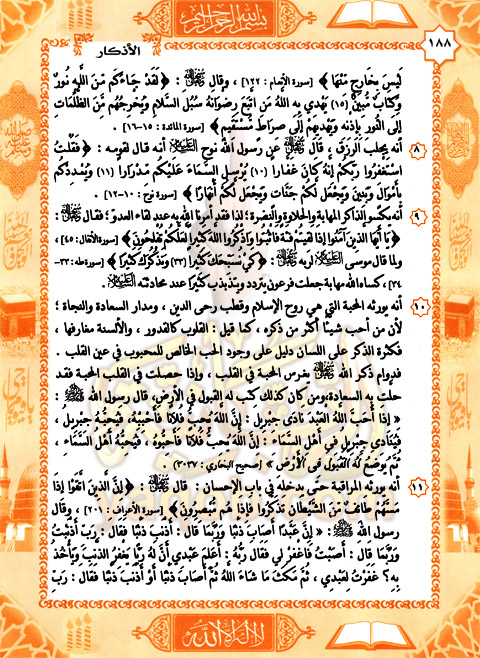 بسم الله الرحمن الرحيم
١٨٨
الأذكار
لَيْسَ بِخَارِجٍ مِّنْهَا ﴾ [سورة الأنعام : ١٢٢] ، وقال ﷻ : ﴿ لَقَدْ جَاءَكُم مِّنَ اللَّهِ نُورٌ
وَكِتَابٌ مُّبِينٌ (١٥) يَهْدِي بِهِ اللَّهُ مَنِ اتَّبَعَ رِضْوَانَهُ سُبُلَ السَّلامِ وَيُخْرِجُهُم مِّنَ الظُّلُمَاتِ
إِلَى النُّورِ بِإِذْنِهِ وَيَهْدِيهِمْ إِلَى صِرَاطٍ مُّسْتَقِيمٍ ﴾ [سورة المائدة : ١٥-١٦] .
٨ أنه يجلب الرزق ، قال ﷻ عن رسول الله نوح عليه السلام أنه قال لقومه : ﴿ فَقُلْتُ
اسْتَغْفِرُوا رَبَّكُمْ إِنَّهُ كَانَ غَفَّارًا (١٠) يُرْسِلِ السَّمَاءَ عَلَيْكُم مِّدْرَارًا (١١) وَيُمْدِدْكُم
بِأَمْوَالٍ وَبَنِينَ وَيَجْعَل لَّكُمْ جَنَّاتٍ وَيَجْعَل لَّكُمْ أَنْهَارًا ﴾ [سورة نوح : ١٠-١٢] .
٩ أنه يكسو الذاكر المهابة والحلاوة والنضرة؛ لذا فقد أمرنا الله به عند لقاء العدو؛ فقال ﷻ :
﴿ يَا أَيُّهَا الَّذِينَ آمَنُوا إِذَا لَقِيتُمْ فِئَةً فَاثْبُتُوا وَاذْكُرُوا اللَّهَ كَثِيرًا لَّعَلَّكُمْ تُفْلِحُونَ ﴾ [سورة الأنفال: ٤٥] ،
ولما قال موسى عليه السلام لربه ﷻ : ﴿ كَيْ نُسَبِّحَكَ كَثِيرًا (٣٣) وَنَذْكُرَكَ كَثِيرًا ﴾ [سورة طه: ٣٣-
٣٤] ، كساه الله مهابة جعلت فرعون يتردد ويتذبذب كثيرًا عند محادثته عليه السلام .
١٠ أنه يورثه المحبة التي هي روح الإسلام وقطب رحى الدين ، ومدار السعادة والنجاة ؛
لأن من أحب شيئًا أكثر من ذكره ، كما قيل : القلوب كالقدور ، والألسنة مغارفها ،
فكثرة الذكر على اللسان دليل على وجود الحب الخالص للمحبوب في عين القلب .
فدوام ذكر الله ﷻ يغرس المحبة في القلب ، وإذا حصلت في القلب المحبة فقد
حلت به السعادة،ومن كان كذلك كتب له القبول في الأرض، قال رسول الله ﷺ :
« إِذَا أَحَبَّ اللَّهُ العَبْدَ نَادَى جِبْرِيلَ : إِنَّ اللَّهَ يُحِبُّ فُلَانًا فَأَحْبِبْهُ، فَيُحِبُّهُ جِبْرِيلُ
فَيُنَادِي جِبْرِيلُ فِي أَهْلِ السَّمَاءِ : إِنَّ اللَّهَ يُحِبُّ فُلَانًا فَأَحِبُّوهُ ، فَيُحِبُّهُ أَهْلُ السَّمَاءِ ،
ثُمَّ يُوضَعُ لَهُ القَبُولُ فِي الأَرْضِ » [صحيح البخاري : ٣٠٣٧] .
١١ أنه يورثه المراقبة حتى يدخله في باب الإحسان : قال ﷻ : ﴿ إِنَّ الَّذِينَ اتَّقَوْا إِذَا
مَسَّهُمْ طَائِفٌ مِّنَ الشَّيْطَانِ تَذَكَّرُوا فَإِذَا هُم مُّبْصِرُونَ ﴾ [سورة الأعراف : ٢٠١] ، وقال
رسول الله ﷺ : « إِنَّ عَبْدًا أَصَابَ ذَنْبًا وَرُبَّمَا قَالَ : أَذْنَبَ ذَنْبًا فَقَالَ : رَبِّ أَذْنَبْتُ
وَرُبَّمَا قَالَ : أَصَبْتُ فَاغْفِرْ لِي فَقَالَ رَبُّهُ : أَعَلِمَ عَبْدِي أَنَّ لَهُ رَبًّا يَغْفِرُ الذَّنْبَ وَيَأْخُذُ
بِهِ؟ غَفَرْتُ لِعَبْدِي ، ثُمَّ مَكَثَ مَا شَاءَ اللَّهُ ثُمَّ أَصَابَ ذَنْبًا أَوْ أَذْنَبَ ذَنْبًا فَقَالَ : رَبِّ
لا إله إلا الله